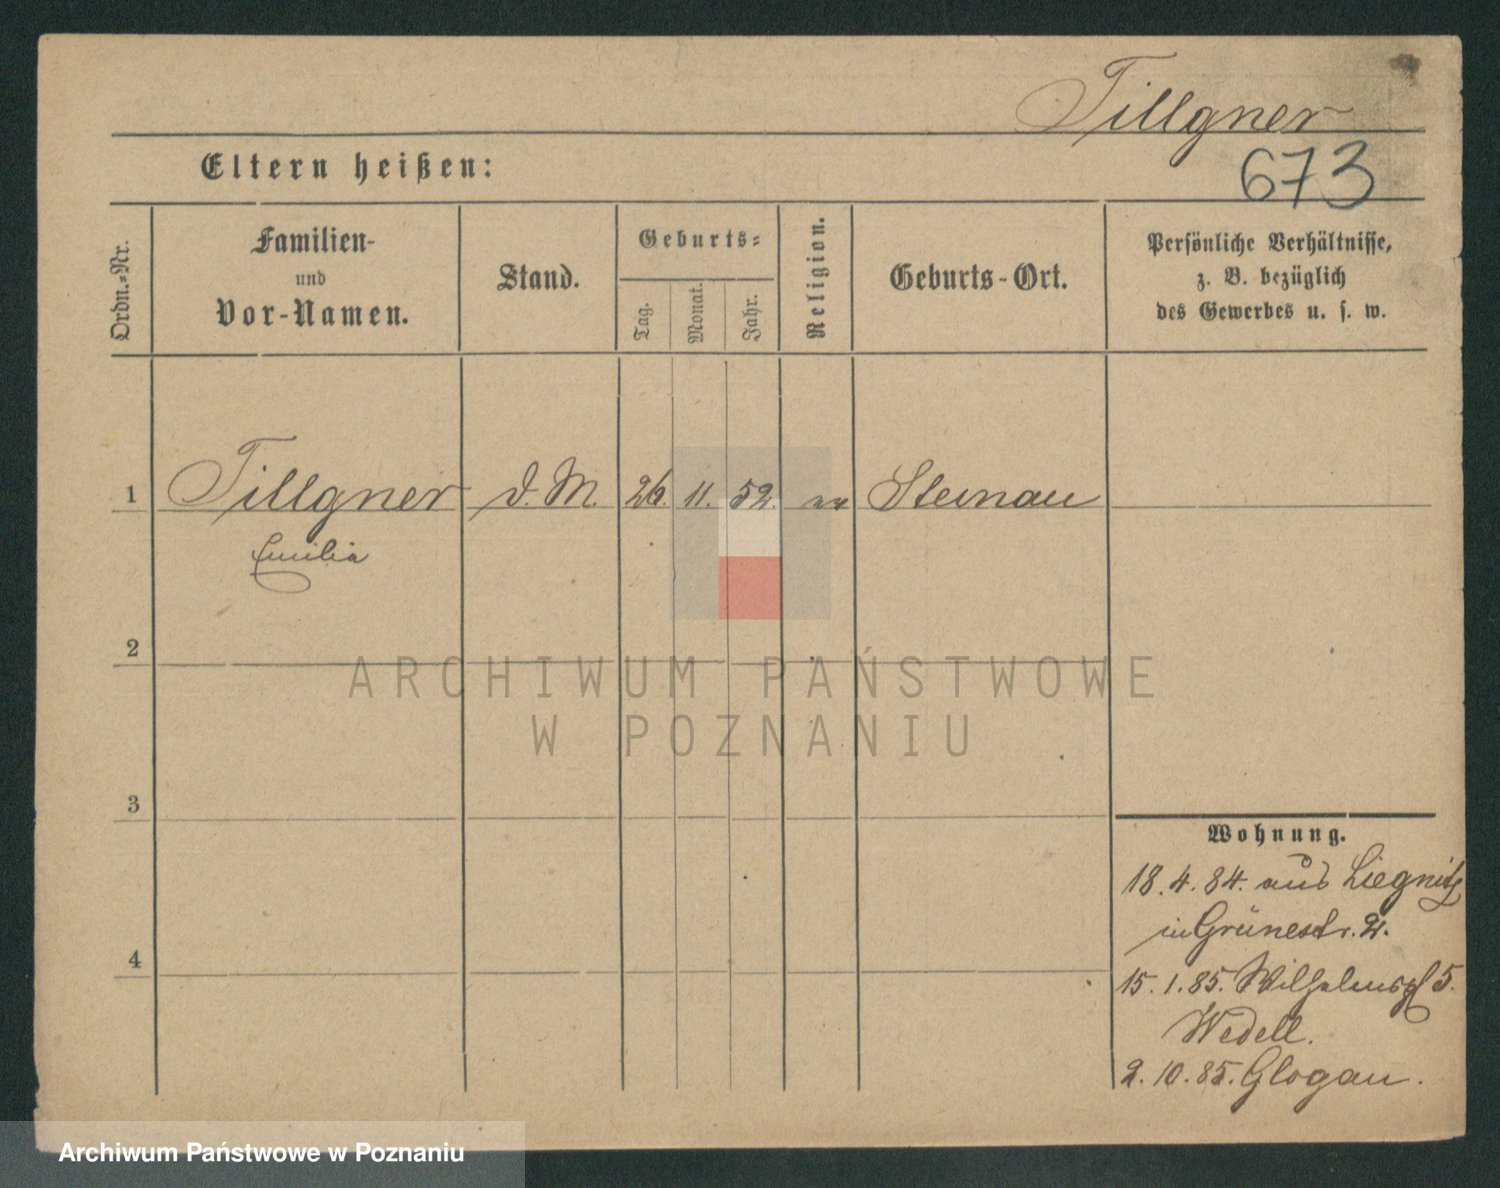 Tillgner
673
Eltern heißen:
Ordn.-Nr.
Familien-
und
Vor-Namen.
Stand.
Geburts-
Tag.
Monat.
Jahr.
Religion.
Geburts-Ort.
Persönliche Verhältnisse,
z. B. bezüglich
des Gewerbes u. s. w.
1 Tillgner d. M. 26. 11. 52. Steinau
Emilia
2
3
4
Wohnung.
18. 4. 84. aus Liegnitz
in Grünestr. 2.
15. 1. 85. Wilhelmspl 5.
Wedell.
2. 10. 85. Glogau.
ARCHIWUM PAŃSTWOWE
W POZNANIU
Archiwum Państwowe w Poznaniu